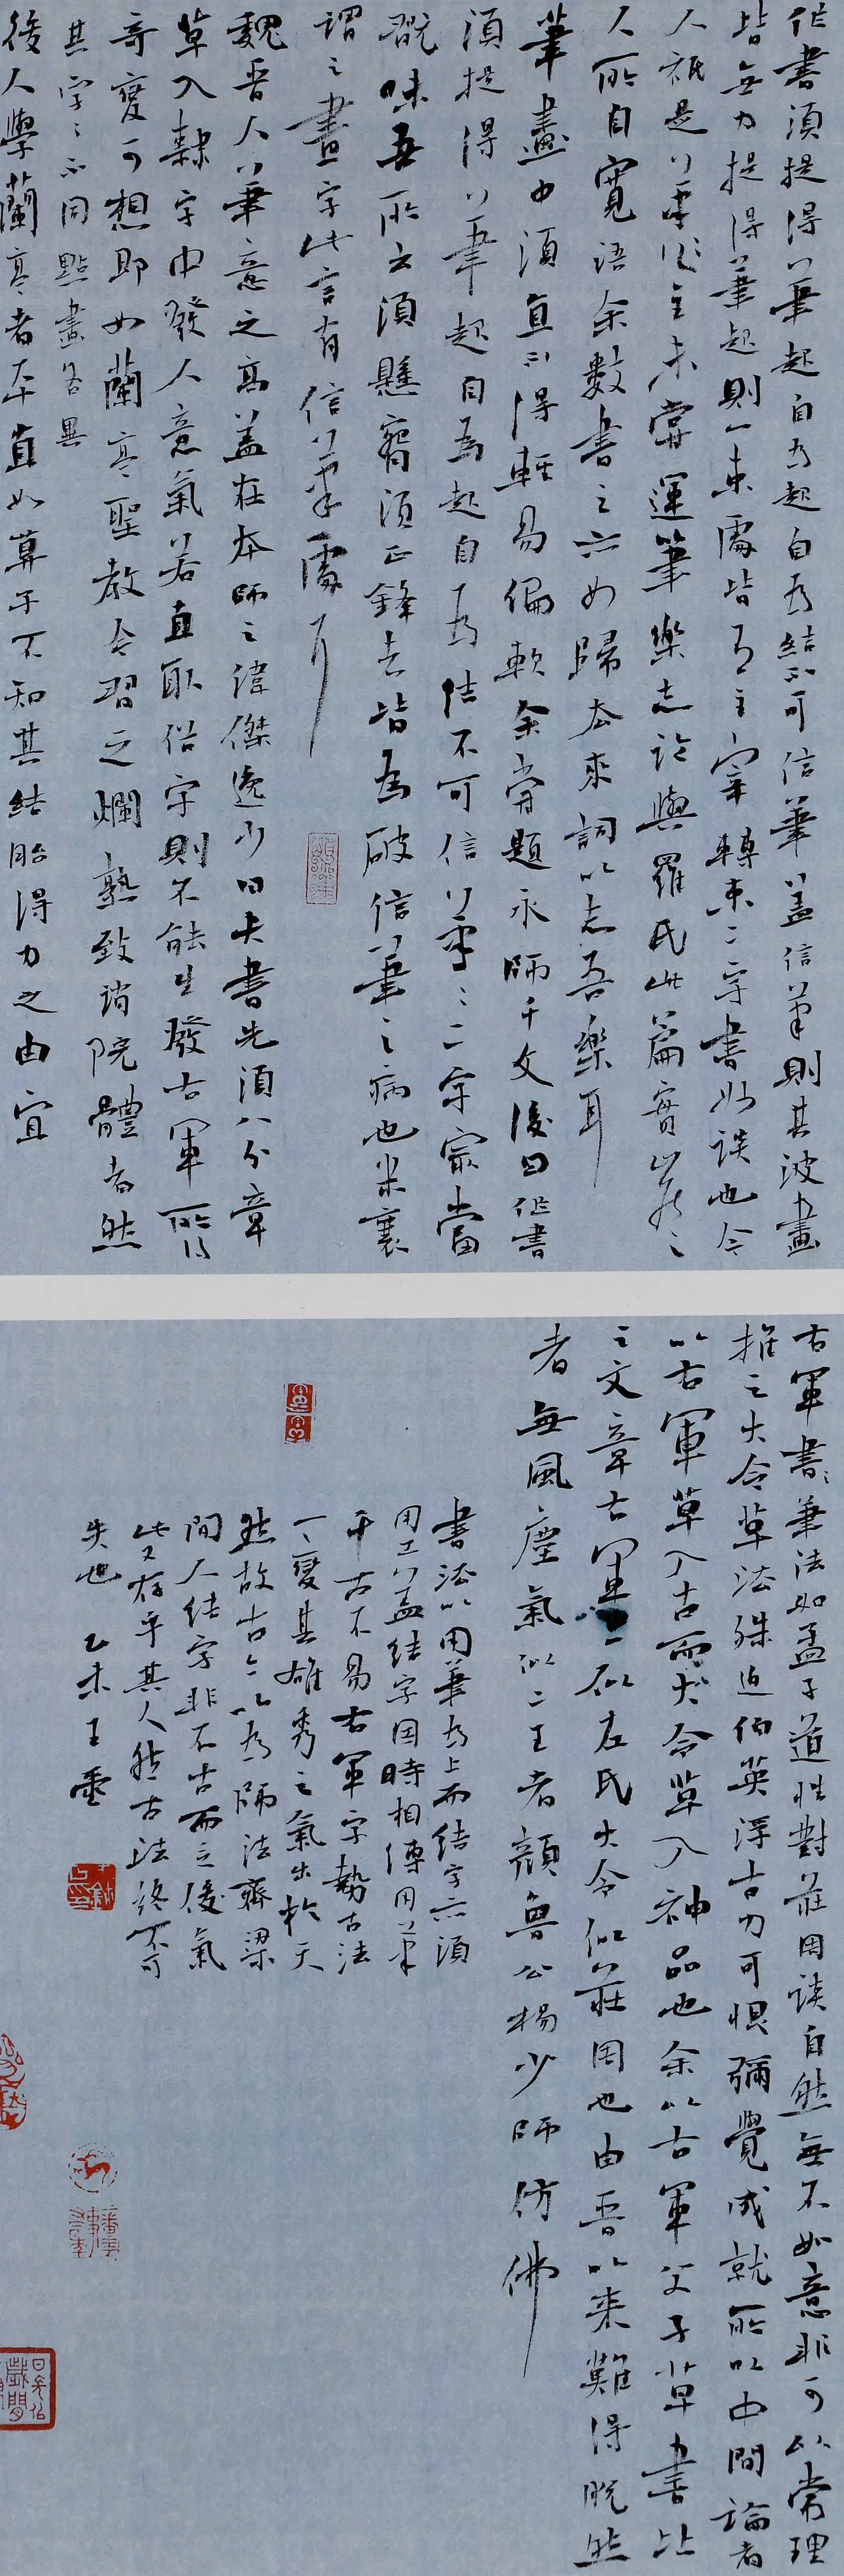 作書須提得筆起自為起自為結不可信筆蓋信筆則其波畫
皆無力提得筆起則一束處皆有主宰轉束二字書妙訣也今
人祇是筆作主未嘗運筆樂志論與羅氏此篇實當之
人所自寬語余數書之亦如歸去來詞以志吾樂耳
筆畫中須直不得輕易偏軟余嘗題永師千文後曰作書
須提得筆起自為起自為結不可信筆二字最當
翫味吾所云須懸腕須正鋒者皆為破信筆之病也米襄
謂之畫字此言有信筆處耳
魏晉人筆意之高蓋在本師之偉傑逸少曰夫書先須八分章
草入隸字中發人意氣若直取俗字則不能生發右軍所得
奇變可想即如蘭亭聖教今習之爛熟致誚院體者然
其字字不同點畫各異
後人學蘭亭者平直如算子不知其結胎得力之由宜
右軍書筆法如孟子道性對莊周談自然無不如意非可以常理
推之大令草法殊迫伯英淳古力可恨彌覺成就所以中間論者
以右軍草入古而大令草入神品也余以右軍父子草書比
之文章右軍似左氏大令似莊周也由晉以來難得脫然
者無風塵氣似二王者顏魯公楊少師仿佛
書法以用筆為上而結字亦須
用工蓋結字因時相傳用筆
千古不易右軍字勢古法
一變其雄秀之氣出於天
然故古今以為師法齊梁
間人結字非不古而乏俊氣
此又存乎其人然古法終不可
失也 乙未